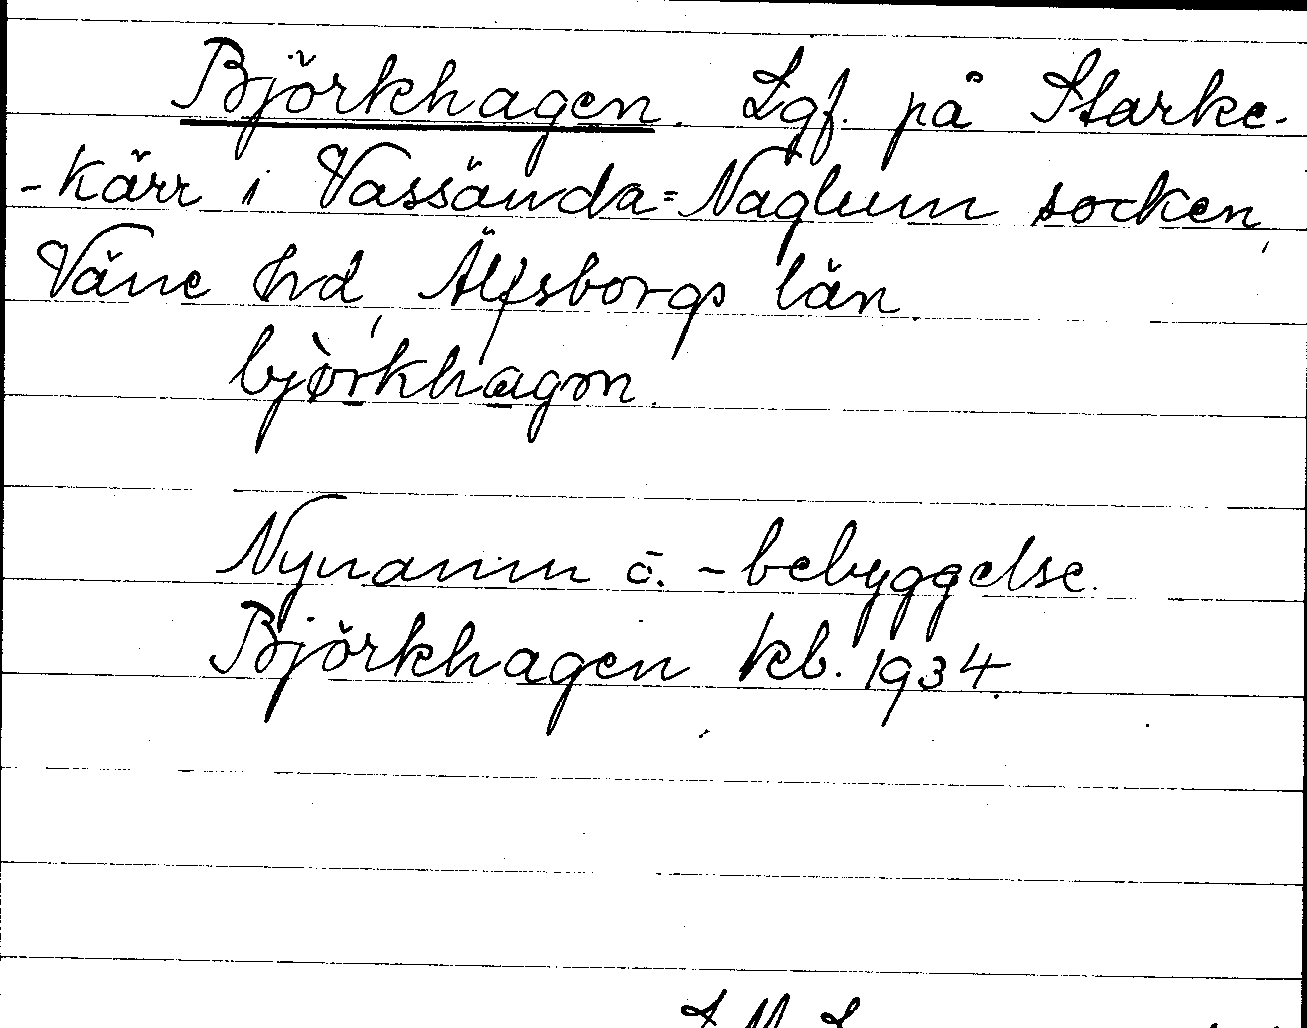 Björkhagen. Lgf. på Starke-
-kärr i Vassända=Naglum socken,
Väne hd, Älfsborgs län.
bjòrkhagɷn.
Nynamn o. -bebyggelse.
Björkhagen kb. 1934.